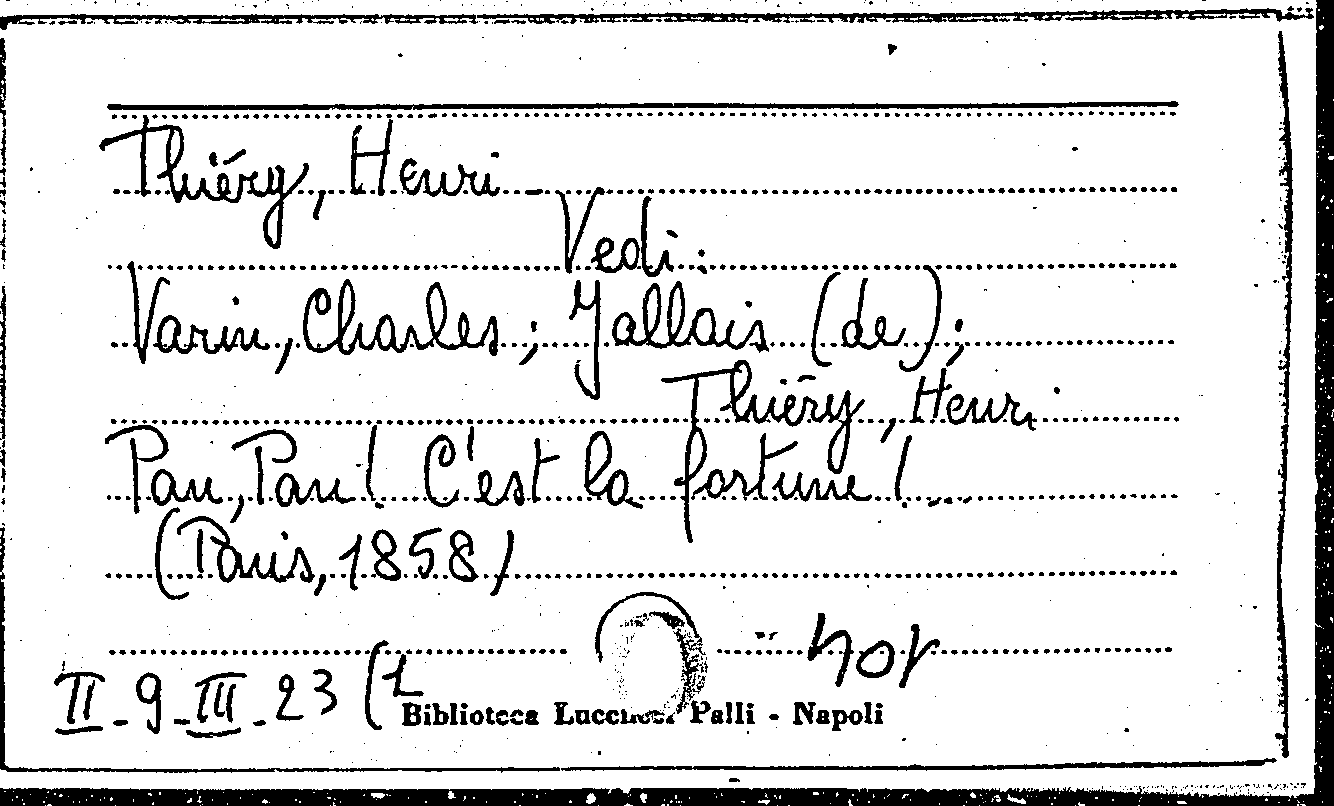 Thiéry, Henri -
Vedi:
Varin, Charles; Jallais (de);
Thiéry, Henri
Pan, Pan! C'est la fortune!...
(Paris, 1858)
II - 9 - III - 23 (1
Biblioteca Lucchesi Palli - Napoli